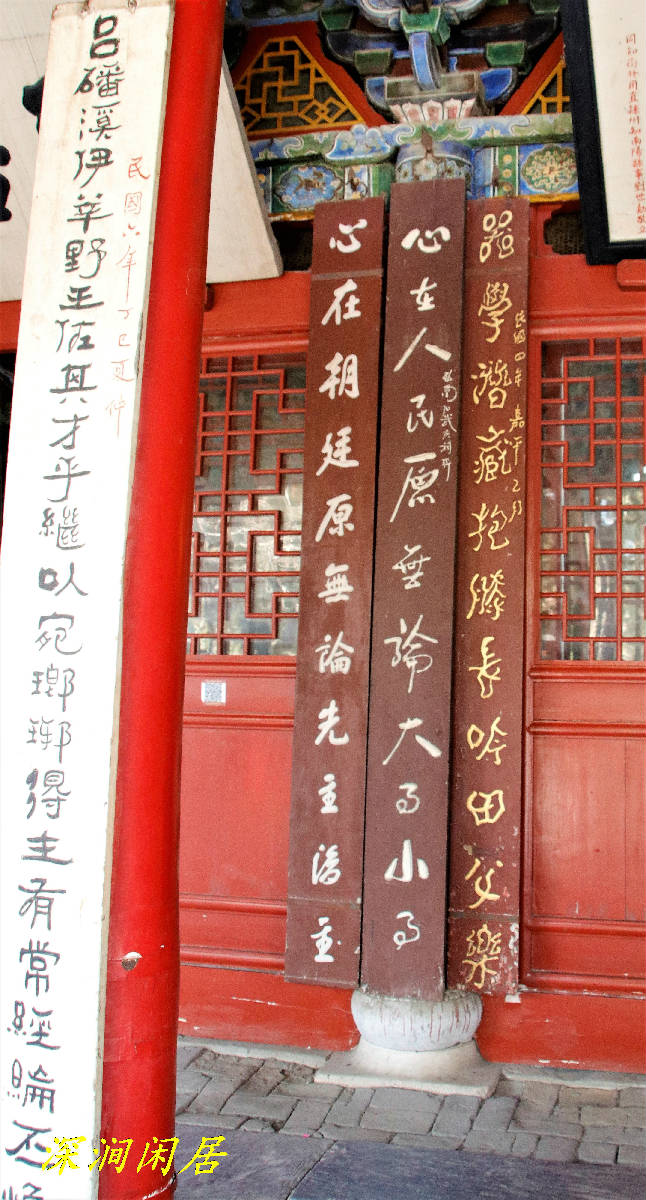 直隸州知南陽縣事
器學潛藏抱膝長吟田父樂
民國四年嘉平之月
心在人民原無論大事小事
心在朝廷原無論先主後主
民國六年丁巳夏仲
呂磻溪伊莘野王佐其才乎繼以宛瑯琊得主有常經綸丕
深涧闲居